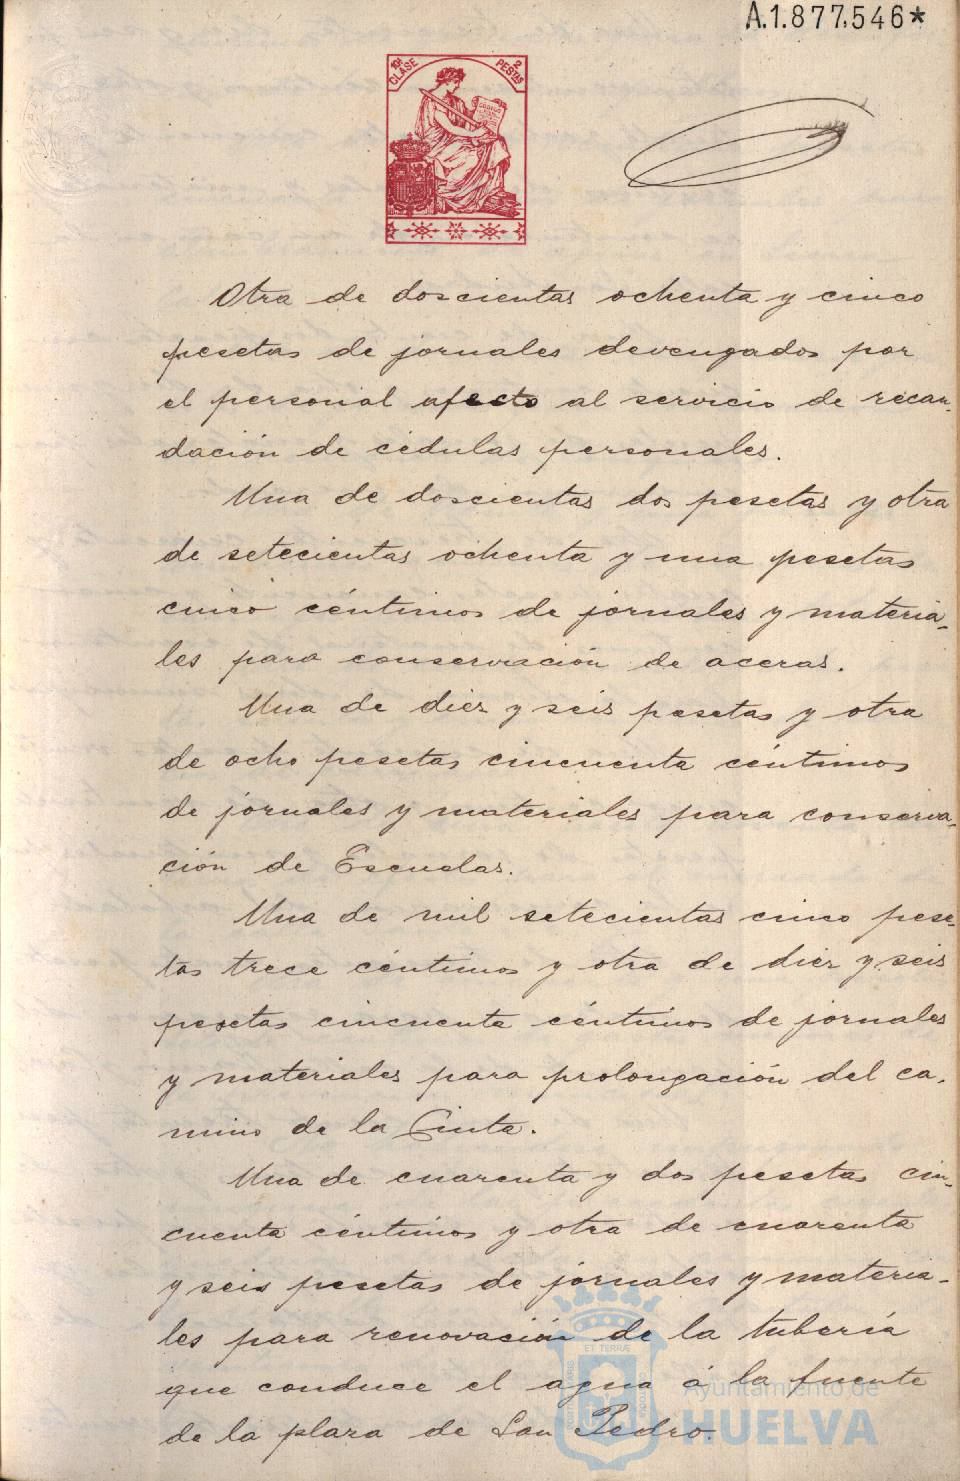 A.1.877,546*
10ª CLASE
2 PESTAS
CODIGO
Otra de doscientas ochenta y cinco
pesetas de jornales devengados por
el personal afecto al servicio de recau-
dación de cédulas personales.
Una de doscientas dos pesetas y otra
de setecientas ochenta y una pesetas
cinco céntimos de jornales y materia-
les para conservación de aceras.
Una de diez y seis pesetas y otra
de ocho pesetas cincuenta céntimos
de jornales y materiales para conserva-
ción de Escuelas.
Una de mil setecientas cinco pese-
tas trece céntimos y otra de diez y seis
pesetas cincuenta céntimos de jornales
y materiales para prolongación del ca-
mino de la Cinta.
Una de cuarenta y dos pesetas cin-
cuenta céntimos y otra de cuarenta
y seis pesetas de jornales y materia-
les para renovación de la tubería
que conduce el agua á la fuente
de la plaza de San Pedro
ET TERRÆ
Ayuntamiento de
HUELVA